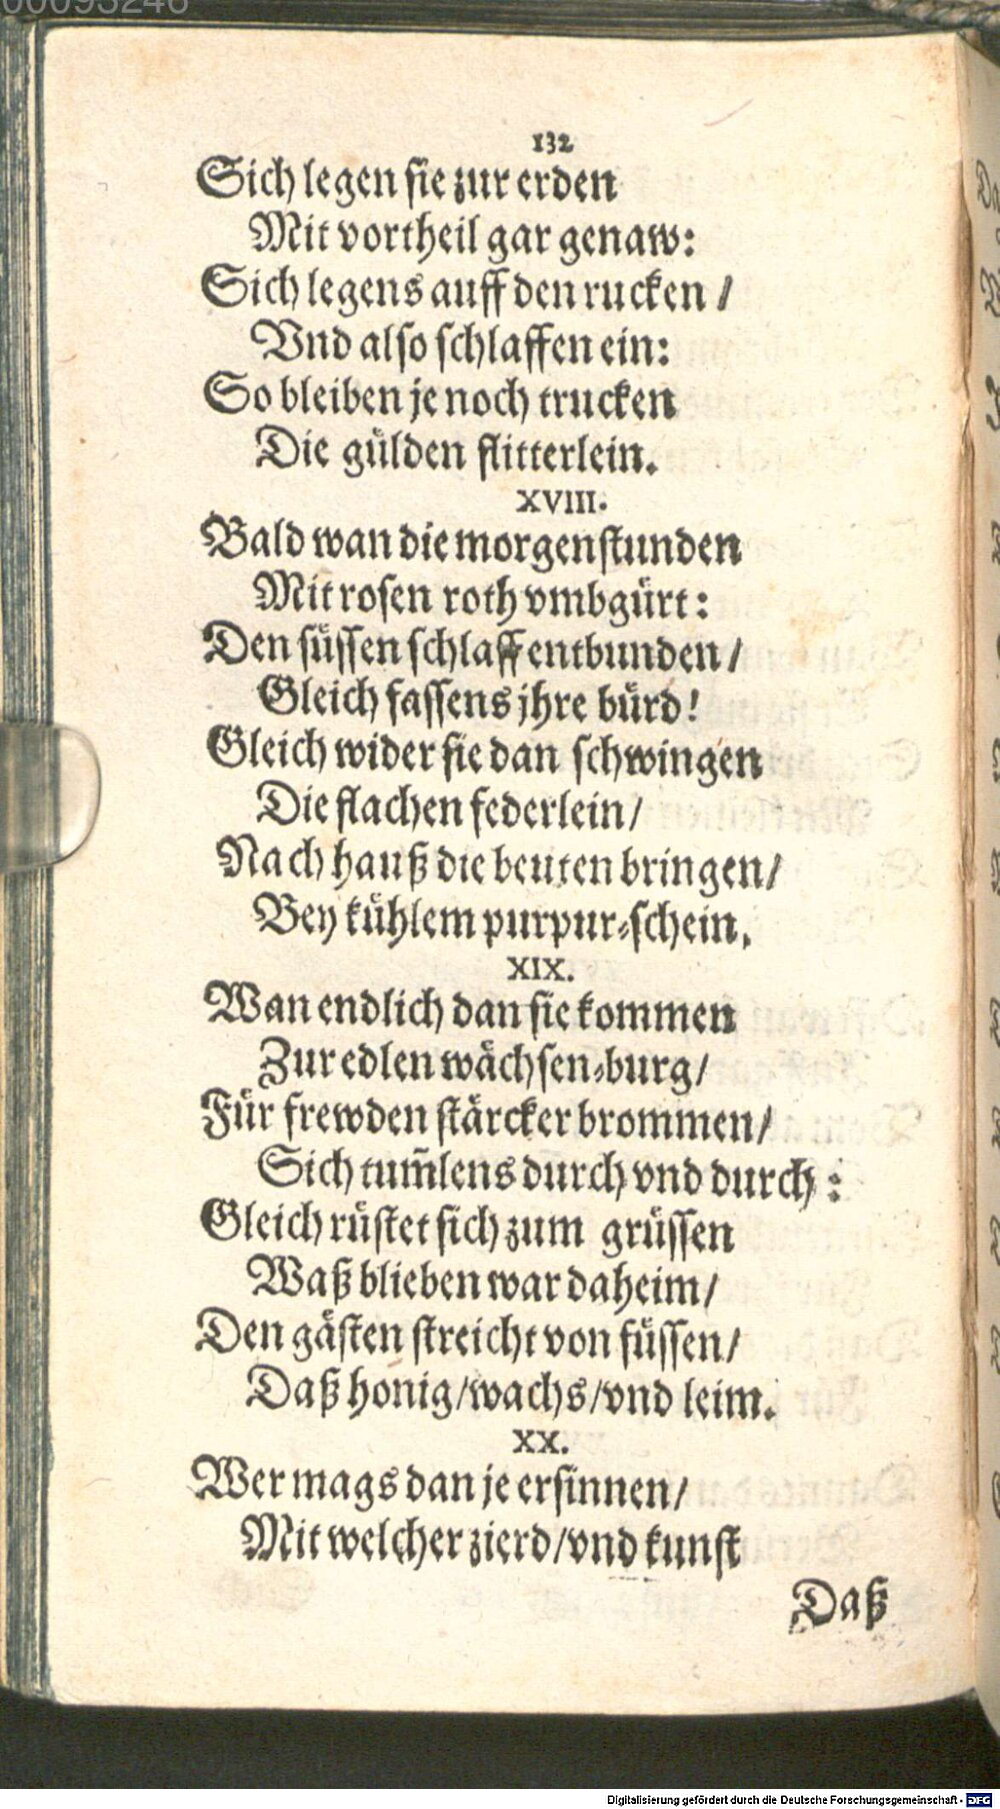 00093246
132
Sich legen sie zur erden
Mit vortheil gar genaw:
Sich legens auff den rucken /
Vnd also schlaffen ein:
So bleiben je noch trucken
Die gülden flitterlein.
XVIII.
Bald wan die morgenstunden
Mit rosen roth vmbgürt:
Den süssen schlaff entbunden /
Gleich fassens jhre bürd!
Gleich wider sie dan schwingen
Die flachen federlein /
Nach hauß die beuten bringen /
Bey kühlem purpur-schein.
XIX.
Wan endlich dan sie kommen
Zur edlen wächsen-burg /
Für frewden stärcker brommen /
Sich tum̃lens durch vnd durch :
Gleich rüstet sich zum grüssen
Waß blieben war daheim /
Den gästen streicht von füssen /
Daß honig / wachs / vnd leim.
XX.
Wer mags dan je ersinnen /
Mit welcher zierd / vnd kunst
Daß
Digitalisierung gefördert durch die Deutsche Forschungsgemeinschaft - DFG